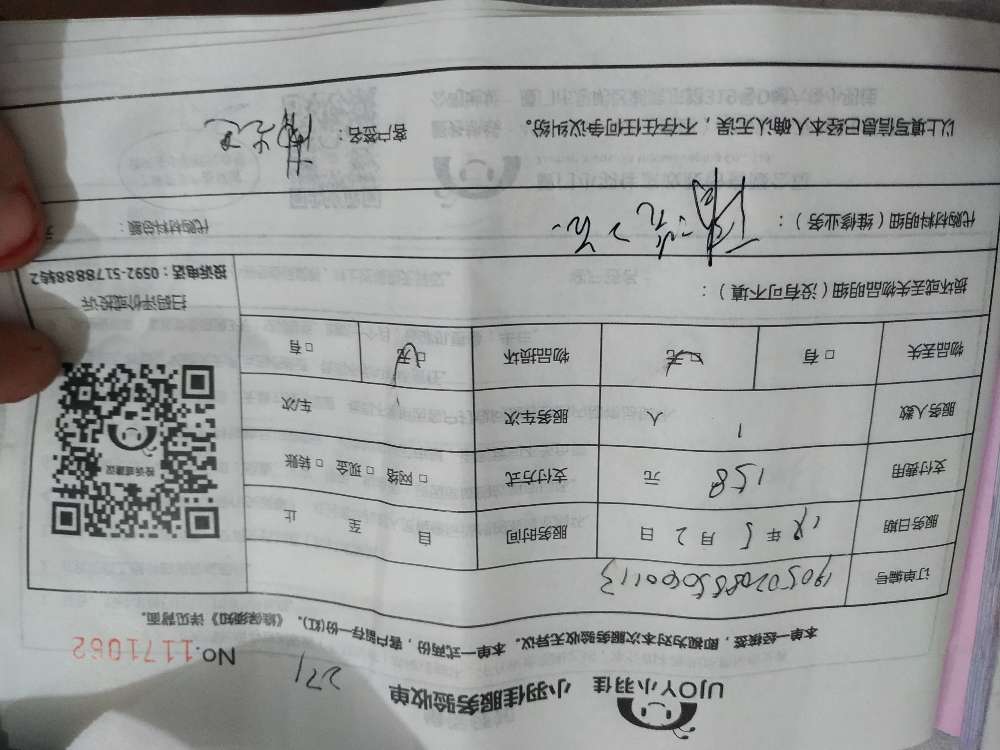 UJOY小羽佳 小羽佳服务验收单
271
NO.1171062
本单一经核签，即视为对本次服务验收无异议。本单一式两份，客户留存一份(红)。《维保须知》详见背面。
订单编号
服务日期 年5月2日 服务时间 自 至 止
支付费用 158 元 支付方式 □ 网络 □ 现金 □ 转账
服务人数 1 人 服务车次 1 车次
物品丢失 □ 有 □ 无 物品损坏 □ 无 □ 有
投诉或建议
扫码评价或投诉
投诉电话：0592-5178888转2
损坏或丢失物品明细（没有可不填）：
代购材料明细（维修业务）： 代购材料总额： 元
以上填写信息已经本人确认无误，不存在任何争议纠纷。 客户签名：